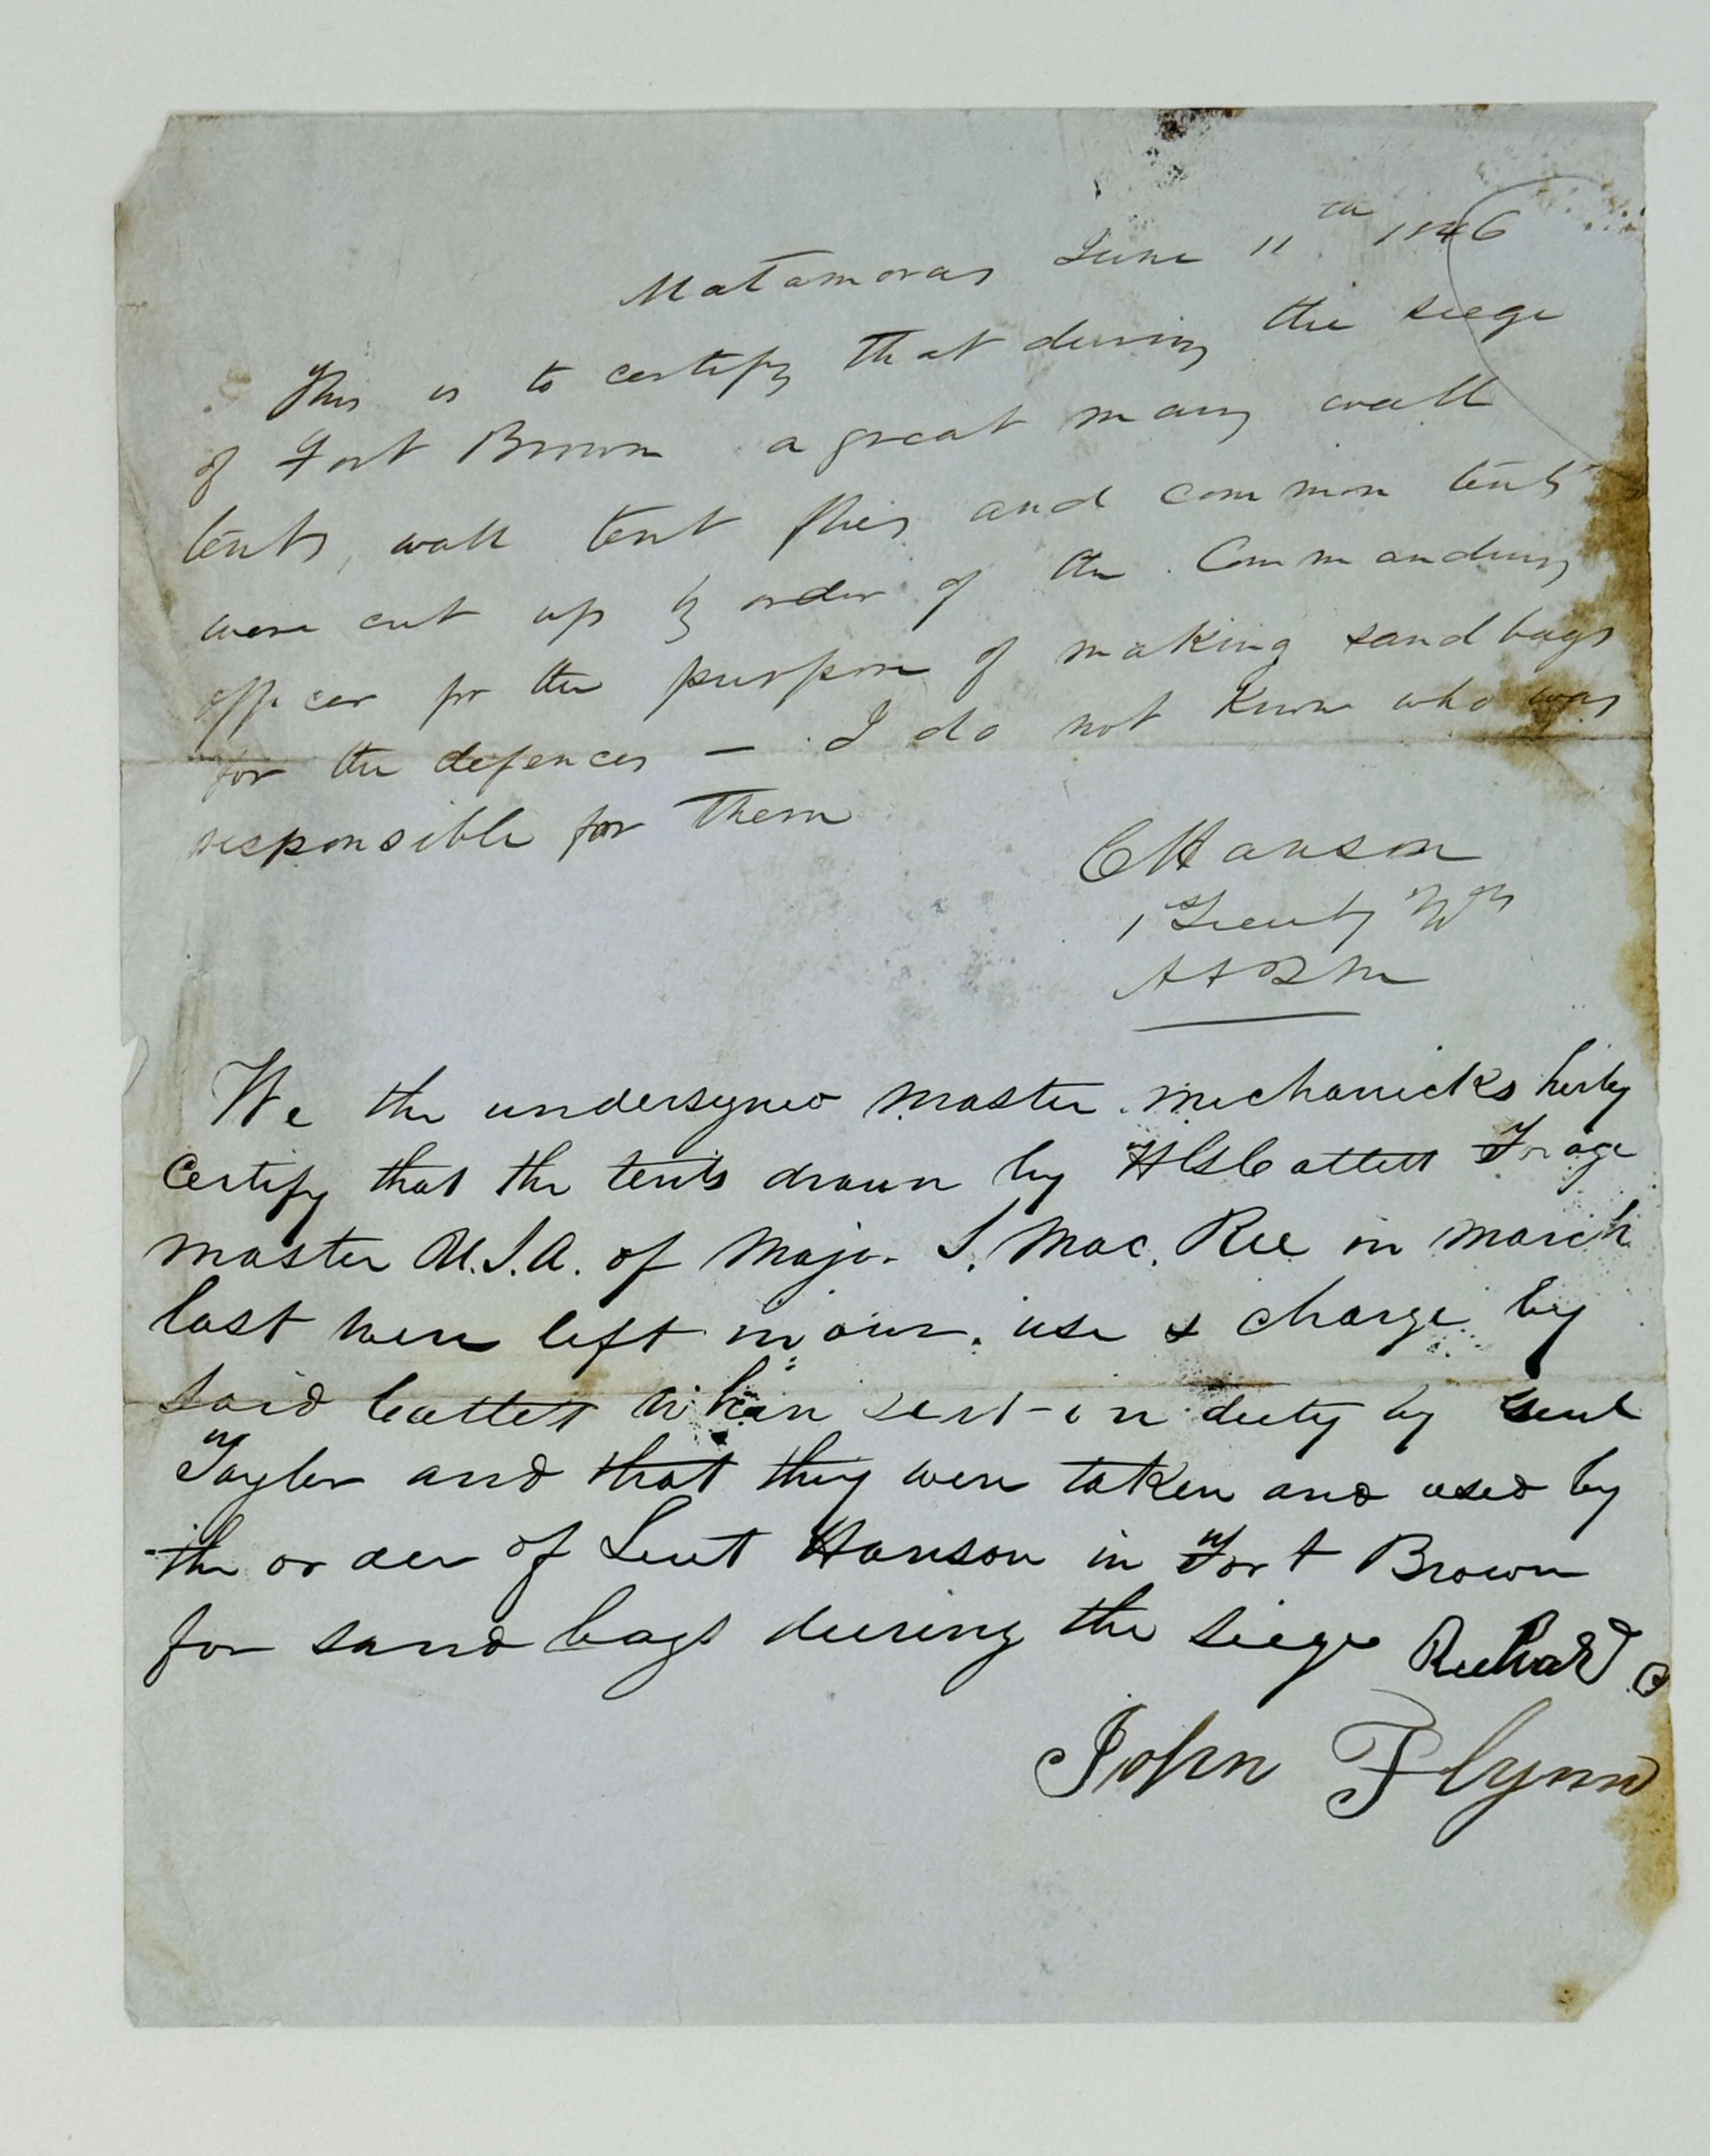 Matamoras June 11th 1846
This is to certify that during the siege
of Fort Brown a great many wall
tents, wall tent flies and common tents
were cut up by order of the Commanding
officer for the purpose of making sand bags
for the defences — I do not know who was
responsible for them
C Hanson
1 Lieut 7th
AAQM
We the undersyned master mechanicks hirby
Certify that the tents drawn by Catlett Forage
master U.S.A. of Majr. S. Mac. Ree in march
last were left in our use & charge by
said Catlett when sent on duty by Genl
Taylor and that they were taken and used by
the order of Leut Hanson in Fort Brown
for sand bags during the siege Richard
John Flynn